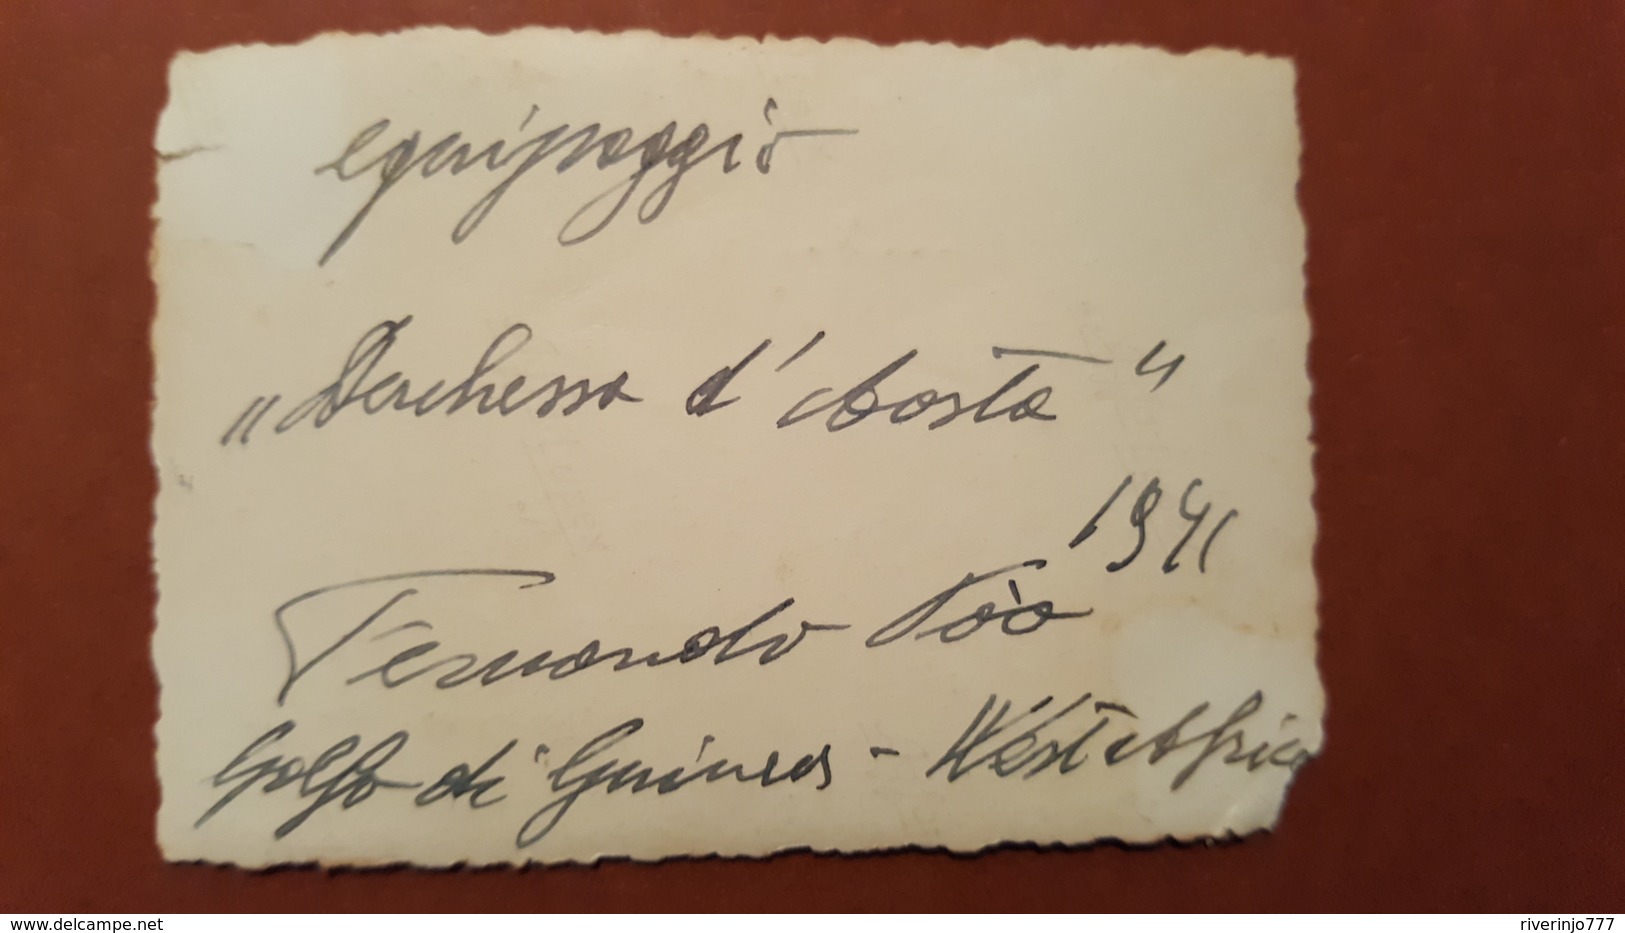 equipaggio
„Duchessa d'Aosta"
1941
Fernando Póo
Golfo di Guinea - West Africa
www.delcampe.net
riverinjo777